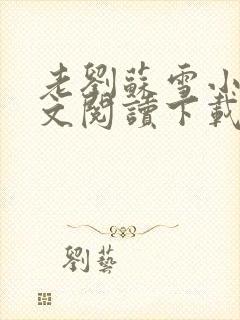 老劉蘇雪小
文閱讀下載
劉藝